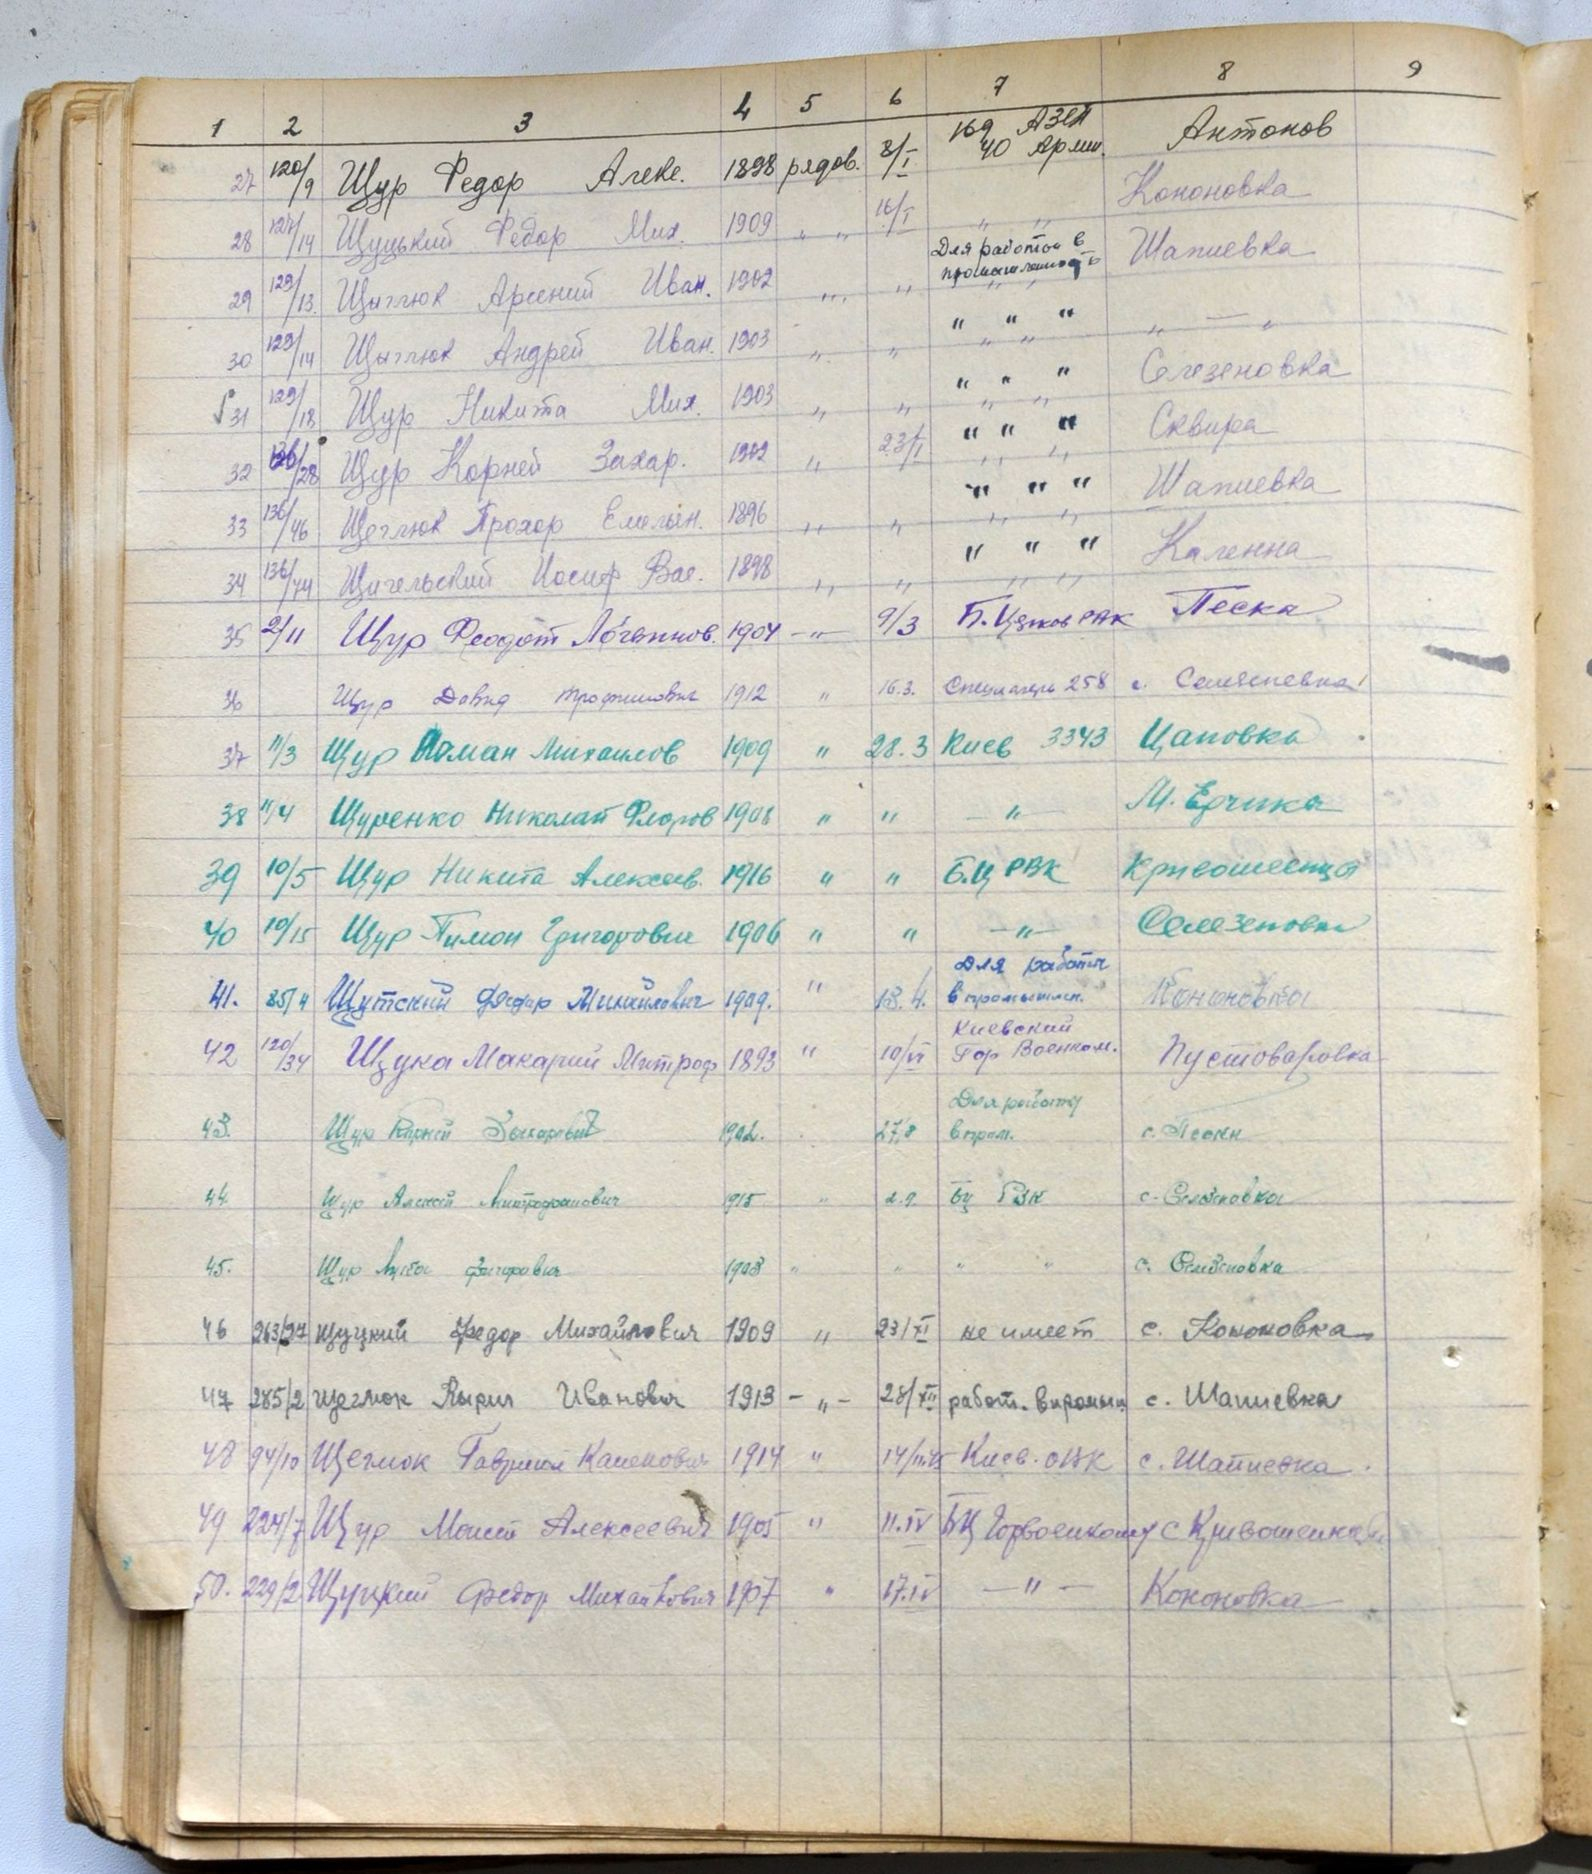 1 2 3 4 5 6 7 8 9
27 120/9 Щур Федор Алекс. 1898 рядов. 8/I 169 АЗСП 40 Арми. Антонов
28 127/14 Щуцький Федор Мих. 1909 " " 16/I " " Кононовка
Для работы в
29 129/13 Щыглюк Арсений Иван. 1902 " " промышленность " " Шапиевка
30 129/14 Щыглюк Андрей Иван. 1903 " " " " " " — "
31 129/18 Щур Никита Мих. 1903 " " " " " Селезеновка
32 136/28 Щур Корней Захар. 1902 " 23/I " " " Сквира
33 136/46 Щеглюк Прохор Емельян. 1896 " " " " " Шапиевка
34 136/74 Щигельский Иосиф Вас. 1898 " " " " " Каленна
35 2/11 Щур Феодот Логвинов. 1904 —"— 9/3 Б. Церков РВК Песка
36 Щур Давид Трофимович 1912 " 16.3. Спецлагерь 258 с. Селезеневка
37 11/3 Щур Роман Михаилов 1909 " 28.3 Киев 3343 Цаповка
38 11/4 Щуренко Николай Флоров 1908 " " —"— М. Ерчики
39 10/5 Щур Никита Алексеев. 1916 " " Б.Ц РВК Кривошеенца
40 10/15 Щур Тимон Григорович 1906 " " —"— Селезеновка
Для работы
41. 85/4 Щутский Федор Михайлович 1909. " 13.4. в промышлен. Кононовка
Киевский
42 120/34 Щука Макарий Митроф 1893 " 10/VI Гор Военком. Пустоваровка
Для работы
43. Щур Корней Захарович 1902. 27,8 в пром. с. Пески
44. Щур Алексей Митрофанович 1915 " 2.9. Бц РВК с. Селезеновка
45. Щур Григорович 1903 " " " " с. Селезеновка
46 263/27 Щуцкий Федор Михайлович 1909 " 23/XI не имеет с. Кононовка
47 285/2 Щеглюк Кирил Иванович 1913 —"— 28/XII работ. в промыш с. Шапиевка
48 94/10 Щеглюк Гавриил 1914 " Киев. ОВК с. Шапиевка.
49 224/7 Щур Моисей Алексеевич 1905 " 11.IV БЦ Горвоенкомат с Кривошеинка
50. 229/2 Щуцкий Федор Михайлович 1907 " 17.IV —"— Кононовка